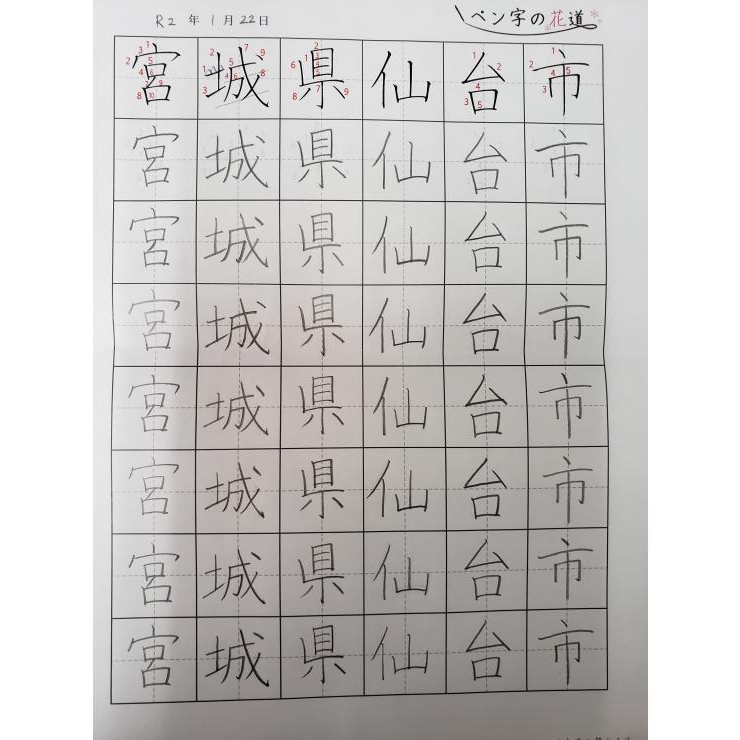 R2 年 1月22日
ペン字の花道
宮城県仙台市
宮城県仙台市
宮城県仙台市
宮城県仙台市
宮城県仙台市
宮城県仙台市
宮城県仙台市
宮城県仙台市